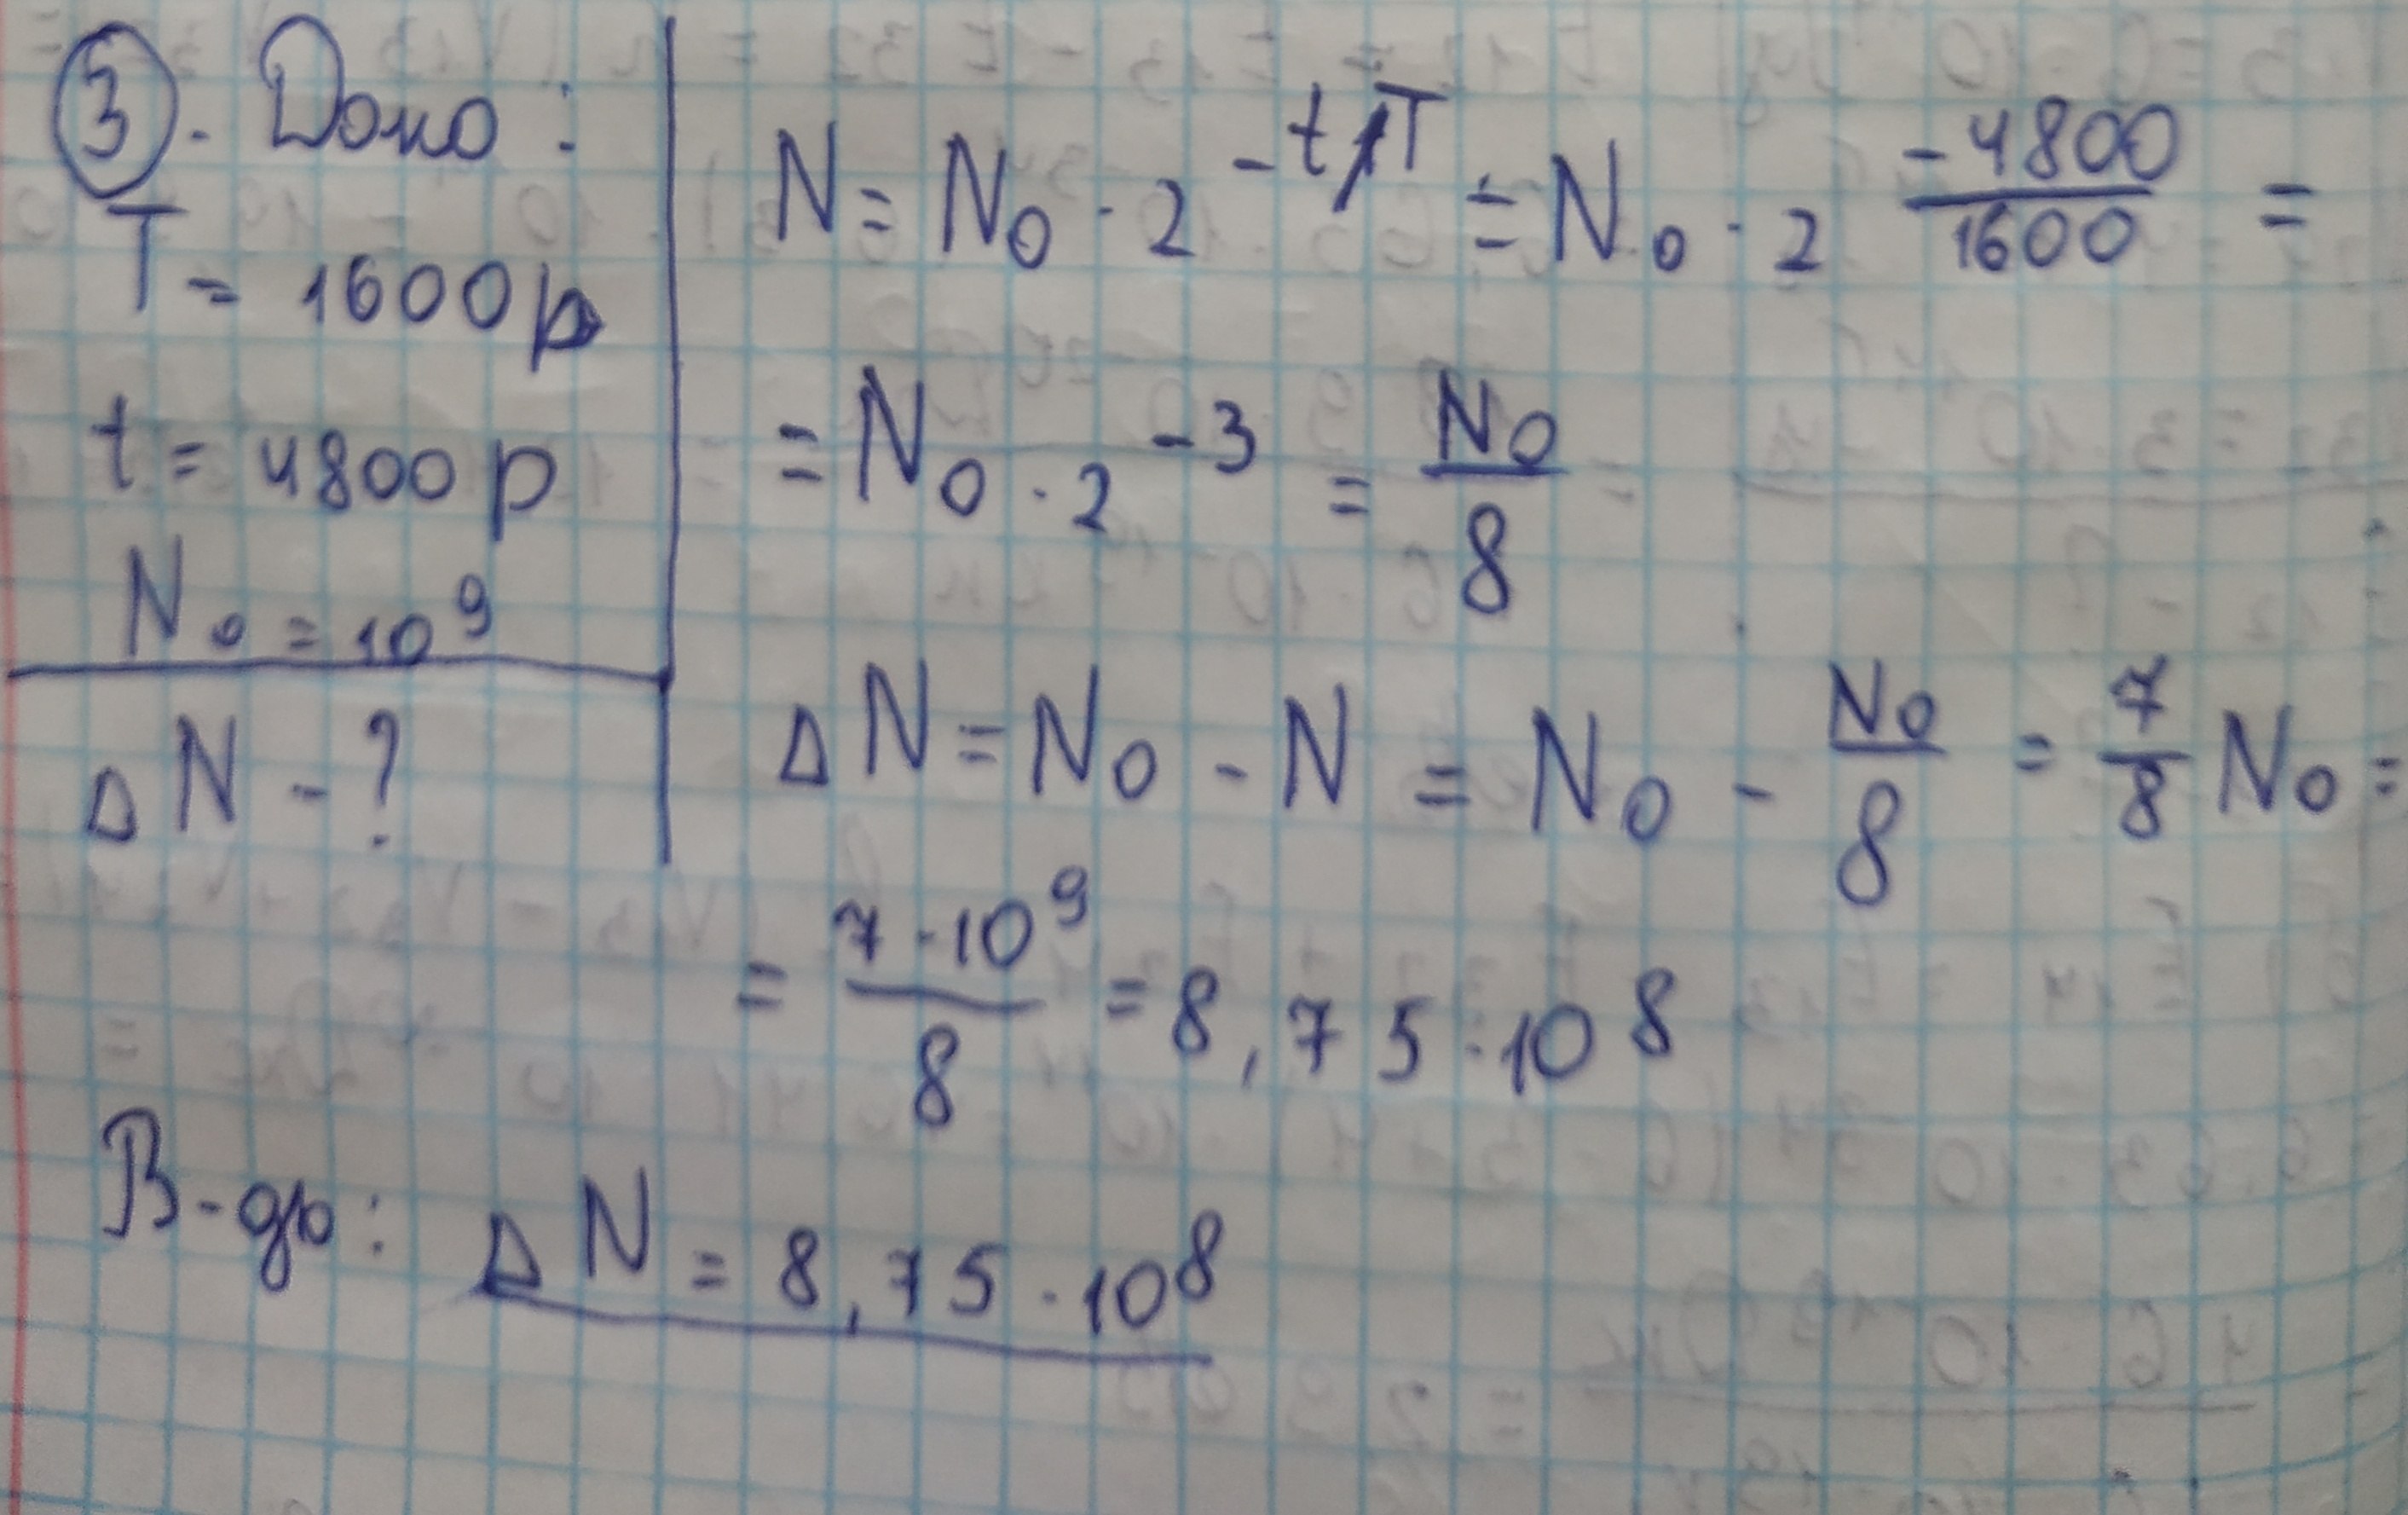 3. Дано:
T = 1600 р
t = 4800 р
N₀ = 10⁹
ΔN - ?
N = N₀ · 2^(-t/T) = N₀ · 2^(-4800/1600) =
= N₀ · 2⁻³ = N₀/8
ΔN = N₀ - N = N₀ - N₀/8 = 7/8 N₀ =
= 7·10⁹/8 = 8,75·10⁸
В-дь: ΔN = 8,75·10⁸